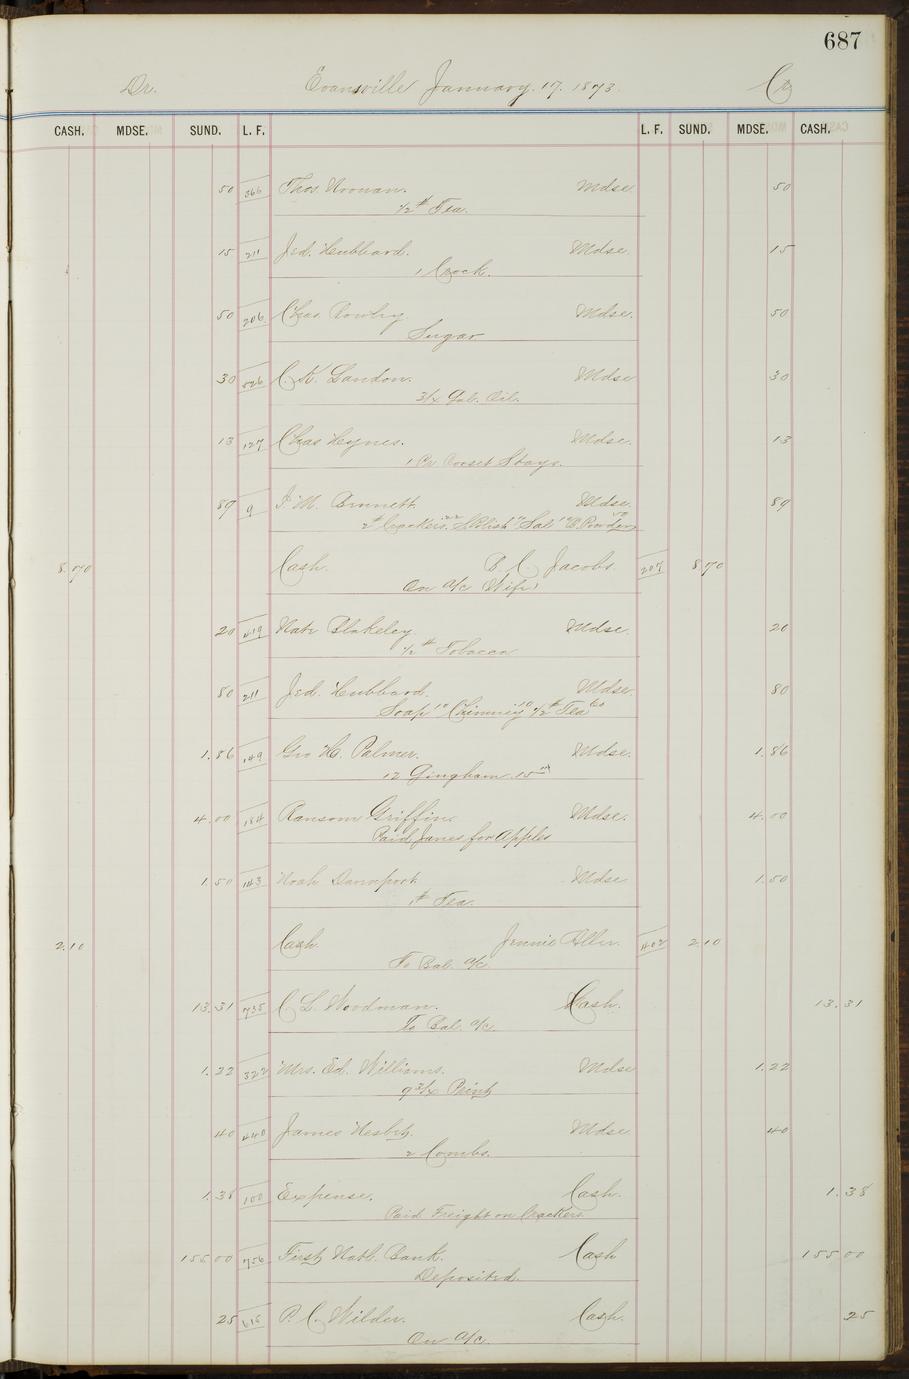 687
Dr. Evansville January 17. 1873. Cr
CASH. MDSE. SUND. L. F. L. F. SUND. MDSE. CASH.
50 366 Thos. Noonan. Mdse 50
1/2 # Tea.
15 211 Jed. Hubbard. Mdse. 15
1 Crock.
50 206 Chas. Rowley. Mdse. 50
Sugar
30 526 C. K. Landon. Mdse 30
3/4 Gal. Oil.
13 127 Chas Heynes. Mdse. 13
1 Pr Corset Stays.
89 9 I. M. Bennett. Mdse. 89
2 # Crackers. 22 S. Polish Sal B. Powder 50
8.70 Cash. B. C. Jacobs. 207 8.70
On a/c Wife
20 419 Nate Blakeley. Mdse. 20
1/2 # Tobacco
80 211 Jed. Hubbard. Mdse. 80
Soap 10 Chimney 10 1/2 # Tea 60
1.86 149 Geo H. Palmer. Mdse. 1.86
12 Gingham. 15
4.00 184 Ransom Griffin. Mdse. 4.00
Paid Janes for Apples
1.50 143 Noah Davenport Mdse 1.50
1 # Tea.
2.10 Cash. Jennie Aller. 402 2.10
To Bal. a/c
13.31 735 C. L. Woodman. Cash. 13.31
To Bal. a/c
1.22 322 Mrs. Ed. Williams. Mdse 1.22
9 3/4 Print
40 440 James Nesbit. Mdse 40
2 Combs.
1.38 100 Expense. Cash. 1.38
Paid Freight on Crackers.
155.00 756 First Natl. Bank. Cash 155.00
Deposited.
25 616 P. C. Wilder. Cash. 25
On a/c.